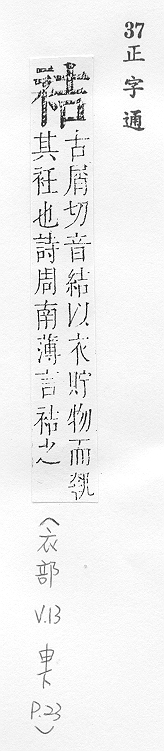 37 正字通
袺
古屑切音結以衣貯物而執
其衽也詩周南薄言袺之
(衣部 V.13 申下 P.23)